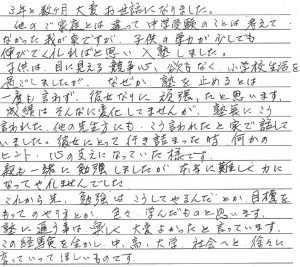 3年と数ヶ月大変お世話になりました。
他のご家庭とは違って中学受験のことは考えて
なかった我が家ですが、子供の学力が少しでも
伸びてくれればと思い入塾しました。
子供は、目に見える競争心、欲もなく、小学校生活を
過ごしましたが、なぜか、塾を止めるとは
一度も言わず、彼女なりに頑張ったと思います。
成績はそんなに変化してませんが、塾長にこう
言われた、他の先生方にも、こう言われたと家で話して
いました。彼女にとって行き詰まった時、何かの
ヒント、心の支えになっていた様です。
親も一緒に勉強しましたが、本当に難しく力に
なってやれませんでした。
これから先、勉強はこうしてやるんだとか、目標を
もってのやり方とか、色々学んだものと思います。
塾に通う事は、楽しく大変よかったと言っています。
この経験を生かし、中、高、大学、社会へと、徐々に
育っていってほしいものです。